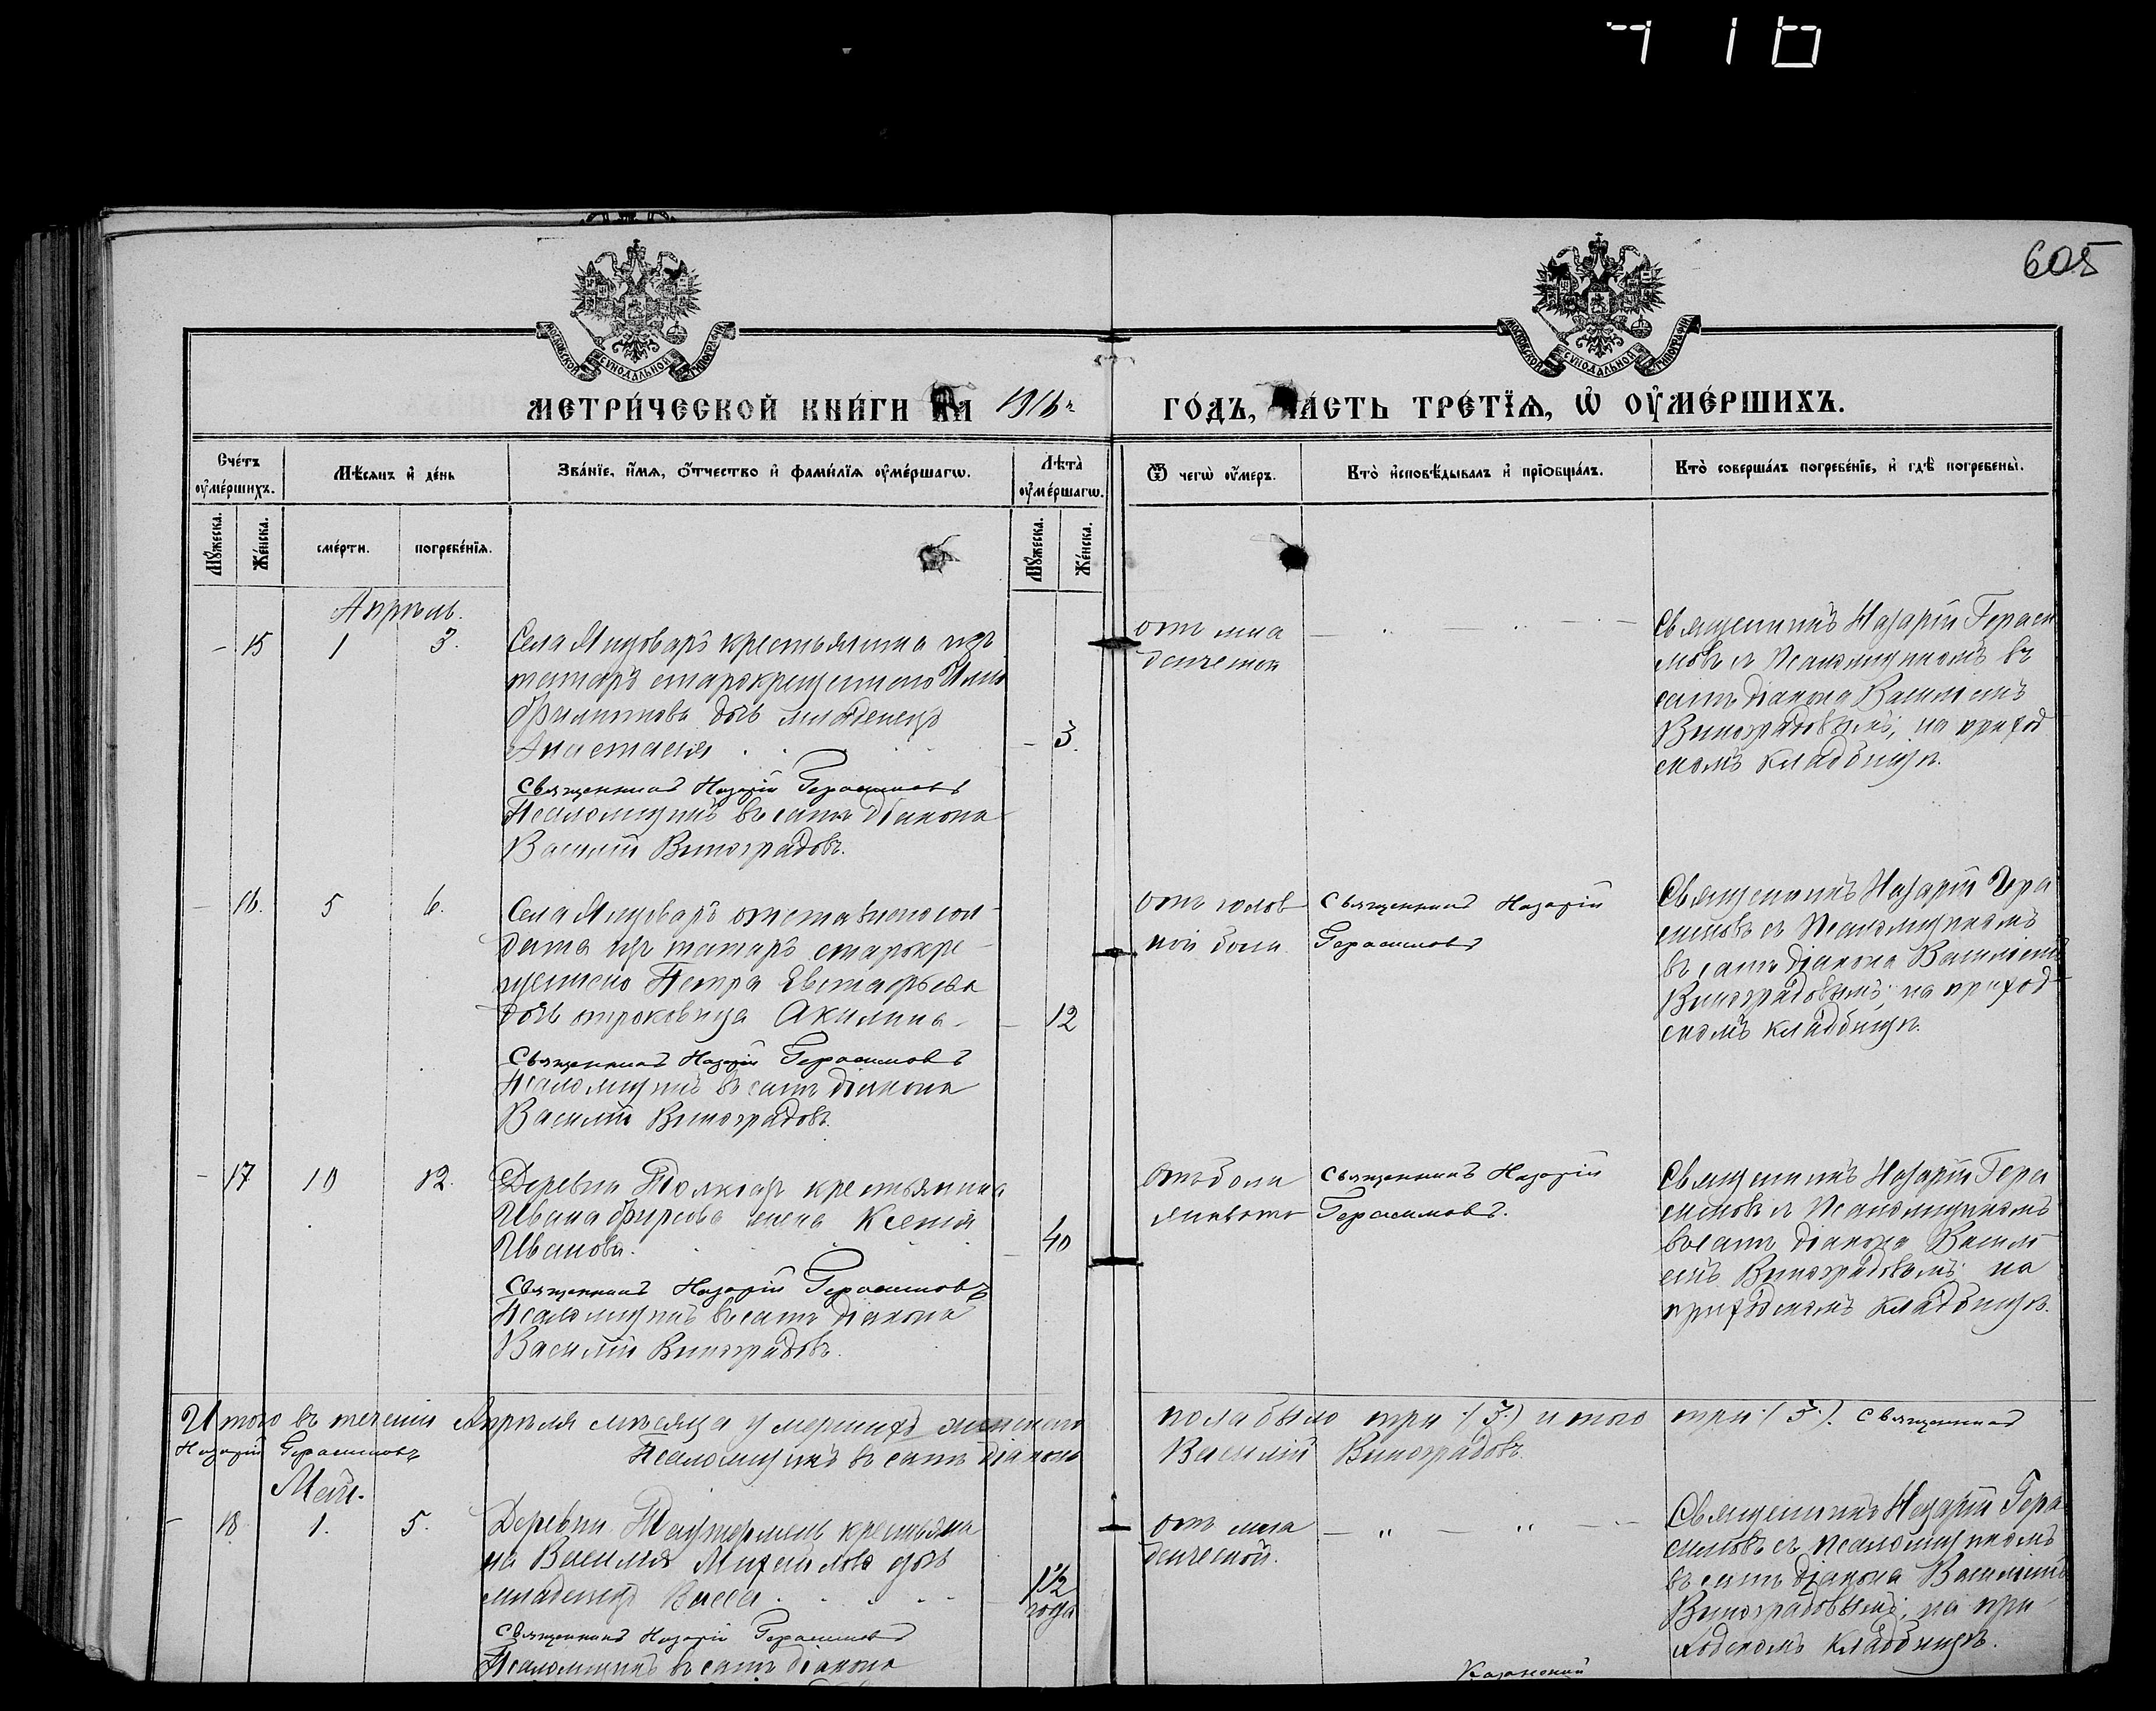 605
МОСКОВСКОЙ СУНОДАЛЬНОЙ ТИПОГРАФІИ
МОСКОВСКОЙ СУНОДАЛЬНОЙ ТИПОГРАФІИ
МЕТРИ́ЧЕСКОЙ КНИ́ГИ НА 1916 г.
ГО́ДЪ, ЧА́СТЬ ТРЕ́ТЇѦ, Ѡ҆ ОУ҆МЕ́РШИХЪ.
Сче́тъ оу҆ме́ршихъ.
Мꙋ́жеска.
Же́нска.
Мѣ́сяцъ и҆ де́нь
сме́рти.
погребе́нїѧ.
Зва́нїе, и҆́мѧ, ѻ҆́тчество и҆ фами́лїѧ оу҆ме́ршагѡ.
Лѣ́та̀ оу҆ме́ршагѡ.
Мꙋ́жеска.
Же́нска.
Ѿ чегѡ̀ оу҆́меръ.
Кто̀ и҆сповѣ́дывалъ и҆ прїѡбща́лъ.
Кто̀ соверша́лъ погребе́нїе, и҆ гдѣ̀ погребены̀.
Апрѣль.
- 15 1 3.
Села крестьянина изъ
татаръ старокрещенаго
Филиппова дочь младенецъ
Анастасія
- 3.
Священникъ Назарій Герасимовъ
Псаломщикъ въ санѣ діакона
Василій Виноградовъ.
отъ мла
денческой
Священникъ Назарій Гераси
мовъ съ псаломщикомъ въ
санѣ діакона Василіемъ
Виноградовымъ; на приход
скомъ кладбищѣ.
- 16. 5 6.
Села отставного сол
дата изъ татаръ старокре
щенаго Петра Евстафьева
дочь отроковица Акилина
- 12
Священникъ Назарій Герасимовъ
Псаломщикъ въ санѣ діакона
Василій Виноградовъ.
отъ голов
ной боли
Священникъ Назарій
Герасимовъ
Священникъ Назарій Гера
симовъ съ псаломщикомъ
въ санѣ діакона Василіемъ
Виноградовымъ; на приход
скомъ кладбищѣ.
- 17 10 12.
Деревни крестьянина
Ивана Фирсова жена Ксенія
Иванова.
- 40
Священникъ Назарій Герасимовъ
Псаломщикъ въ санѣ діакона
Василій Виноградовъ.
отъ боли
живота
Священникъ Назарій
Герасимовъ.
Священникъ Назарій Гера
симовъ съ псаломщикомъ
въ санѣ діакона Василі
емъ Виноградовымъ; на
приходскомъ кладбищѣ.
Итого въ теченіи Апрѣля мѣсяца умершихъ женскаго пола было три (3.) итого три (3.). Священникъ
Назарій Герасимовъ Псаломщикъ въ санѣ діакона Василій Виноградовъ.
Май.
- 18 1. 5.
Деревни крестьяни
на Василія Михайлова дочь
младенецъ Васса
1½ года
Священникъ Назарій Герасимовъ
Псаломщикъ въ санѣ діакона
отъ мла
денческой.
Священникъ Назарій Гера
симовъ съ псаломщикомъ
въ санѣ діакона Василіемъ
Виноградовымъ; на при
ходскомъ кладбищѣ.